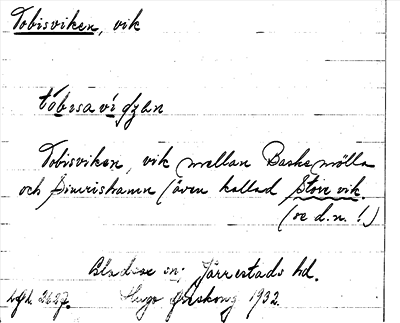 Tobisviken, vik
tobisavidzan
Tobisviken, vik mellan Baskemölla
och Simrishamn (även kallad Store vik.
(se d.n.!.)
sn; Järrestads hd.
Hugo Areskoug 1932.